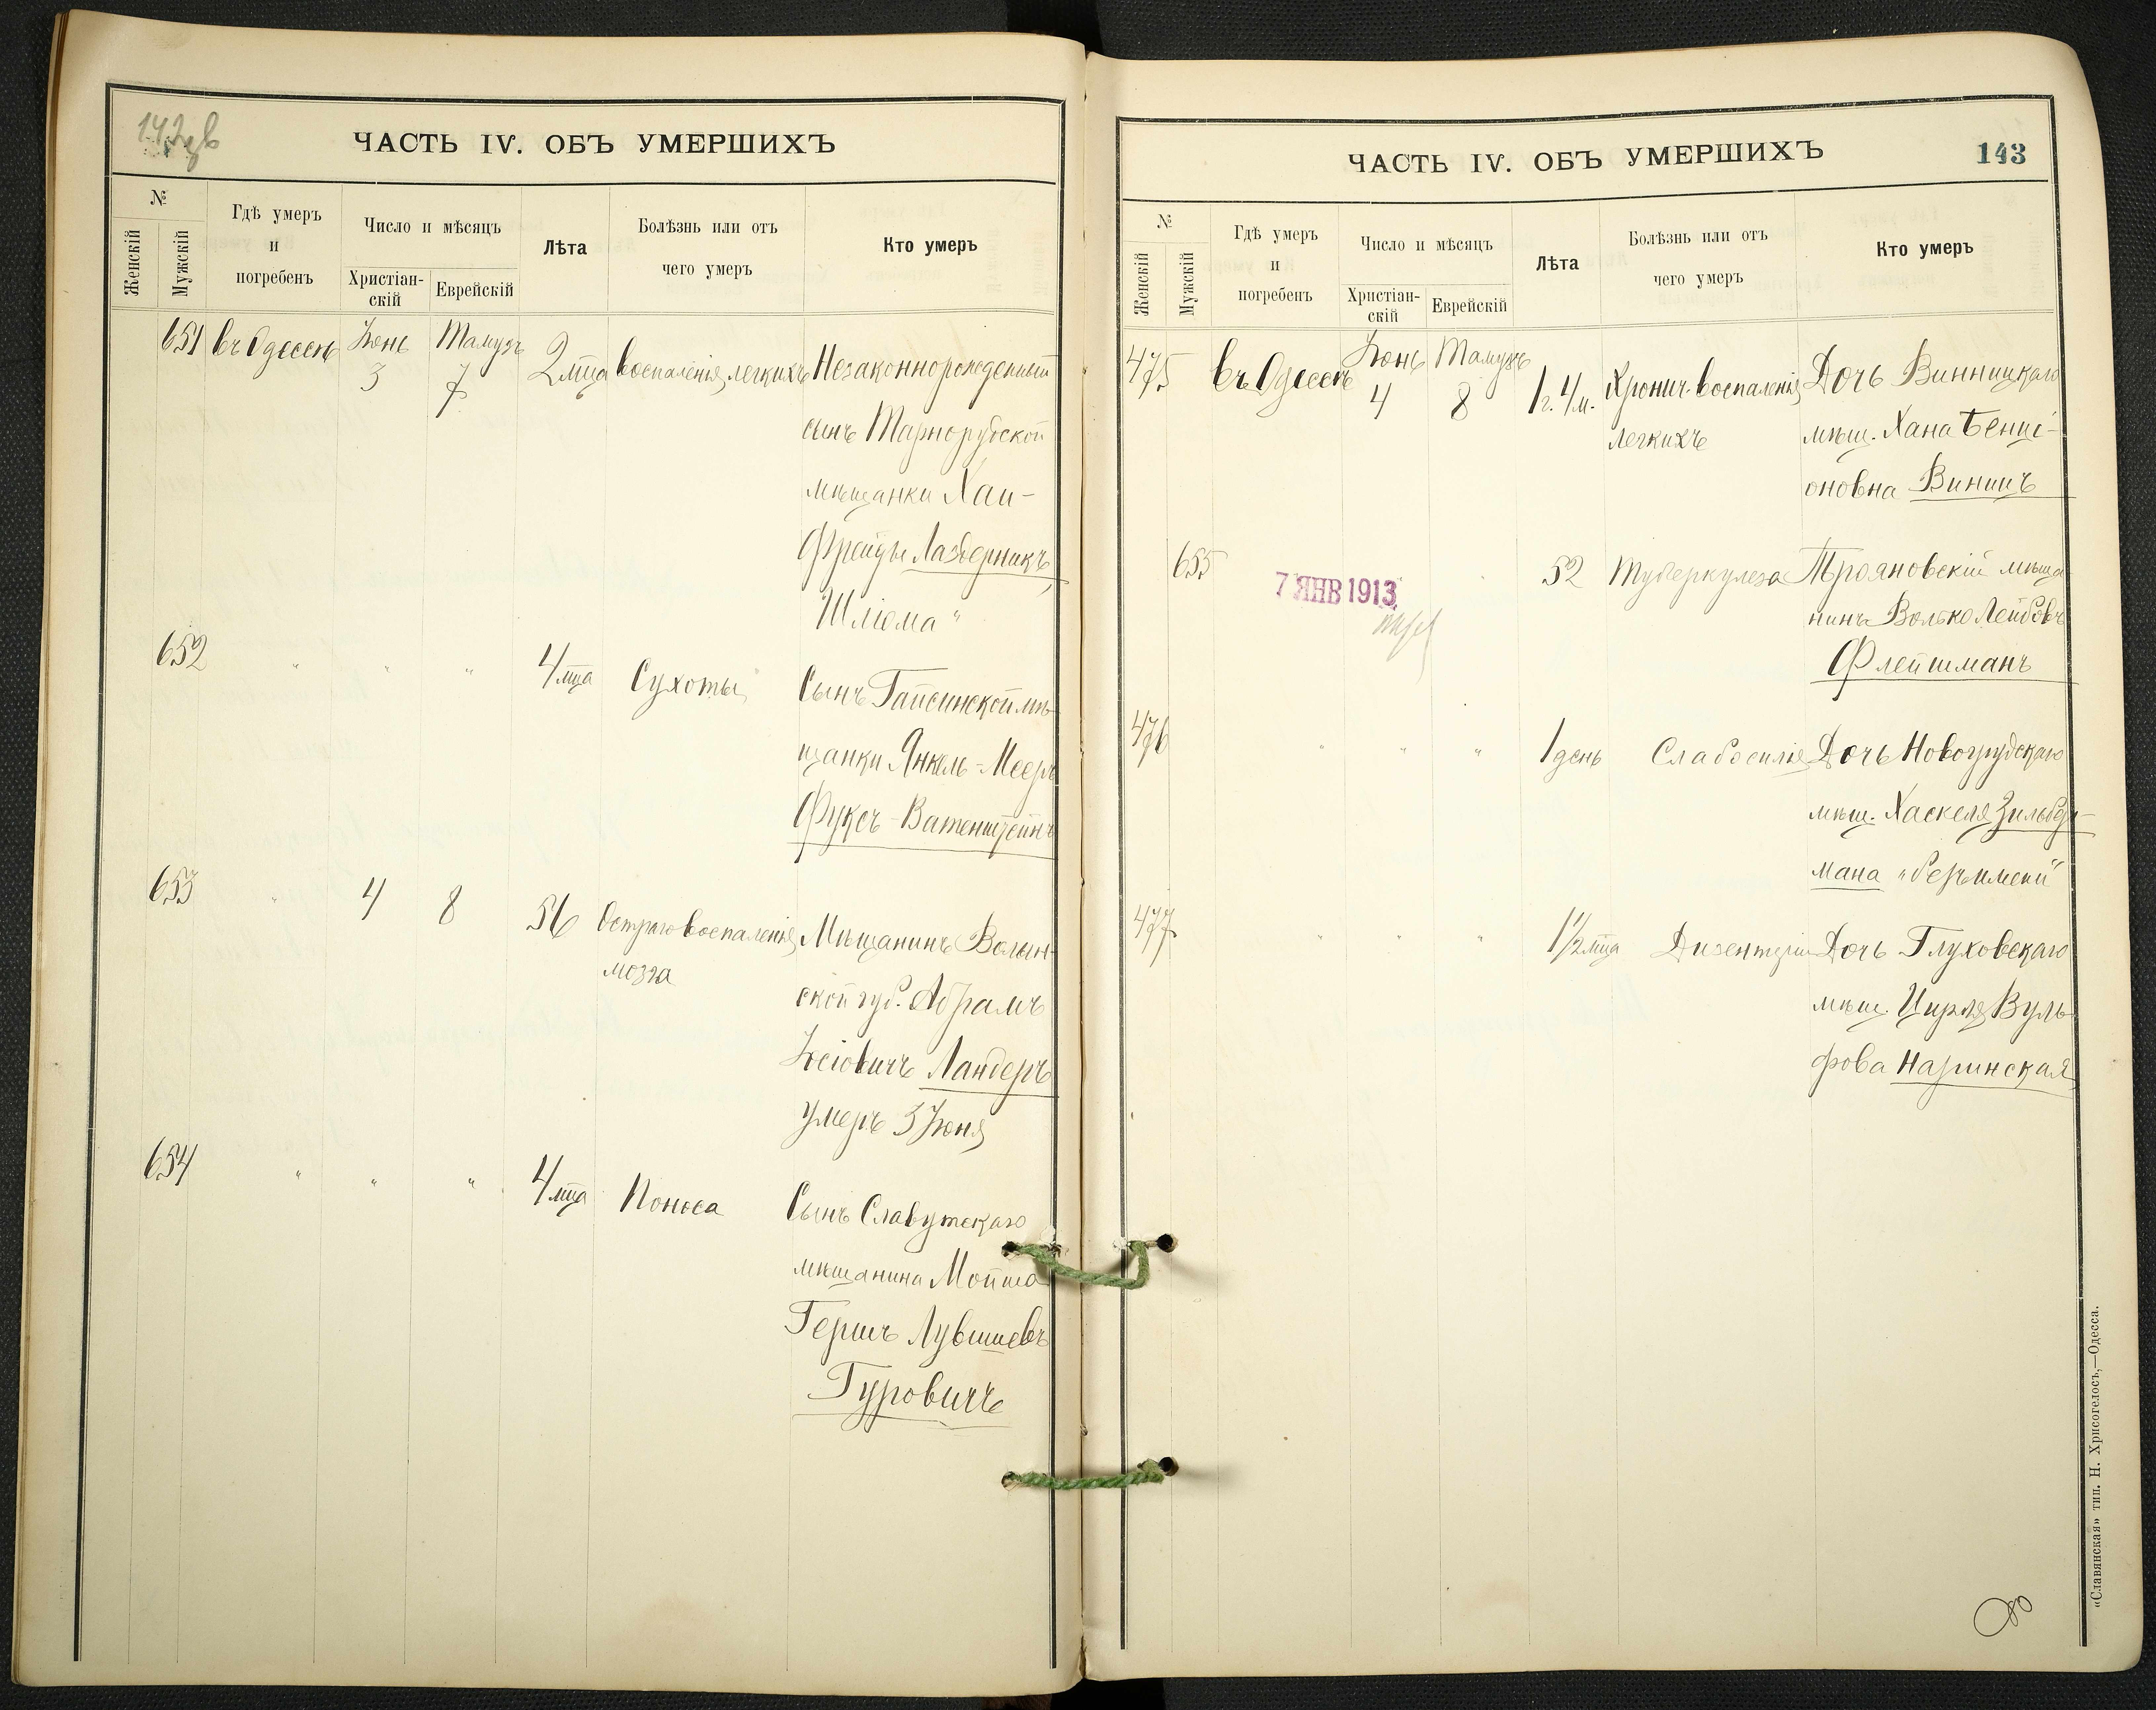 142 об
ЧАСТЬ IV. ОБЪ УМЕРШИХЪ
№
Женскій
Мужскій
Гдѣ умеръ
и
погребенъ
Число и мѣсяцъ
Христіан-
скій
Еврейскій
Лѣта
Болѣзнь или отъ
чего умеръ
Кто умеръ
651 въ Одессѣ Іюнь 3 Тамузъ 7 2 мца воспаленія легкихъ Незаконнорожденный
сынъ Тарнорудской
мѣщанки Хаи-
Фрейды Лазберникъ
Шліома"
652 " " " 4 мца Сухоты Сынъ Гайсинской мѣ-
щанки Янкель-Мееръ
Фуксъ-Ватенштейнъ
653 " 4 8 56 Остраго воспаленія Мѣщанинъ Волын-
мозга
ской губ. Абрамъ
Іосіовичъ Ландеръ
умеръ 3 Іюня
654 " " " 4 мца Поноса Сынъ Славутскаго
мѣщанина Мойша
Гершъ Лувишевъ
Гуровичъ
ЧАСТЬ IV. ОБЪ УМЕРШИХЪ
143
№
Женскій
Мужскій
Гдѣ умеръ
и
погребенъ
Число и мѣсяцъ
Христіан-
скій
Еврейскій
Лѣта
Болѣзнь или отъ
чего умеръ
Кто умеръ
475 въ Одессѣ Іюнь 4 Тамузъ 8 1 г. 4 м. Хронич. воспаленія Дочь Винницкаго
легкихъ
мѣщ. Хана Бенці-
оновна Виницъ
655 7 ЯНВ 1913 " 52 Туберкулеза Трояновскій мѣща-
нинъ Волько Лейбовъ
Флейшманъ
476 " " " 1 день Слабосилія Дочь Новогрудскаго
мѣщ. Хаскеля Зильбер-
мана "безъ имени"
477 " " " 1 1/2 мца Дизентеріи Дочь Глуховскаго
мѣщ. Цирля Вуль-
фова Наринская
«Славянская» тип. Н. Хрисогелосъ,—Одесса.